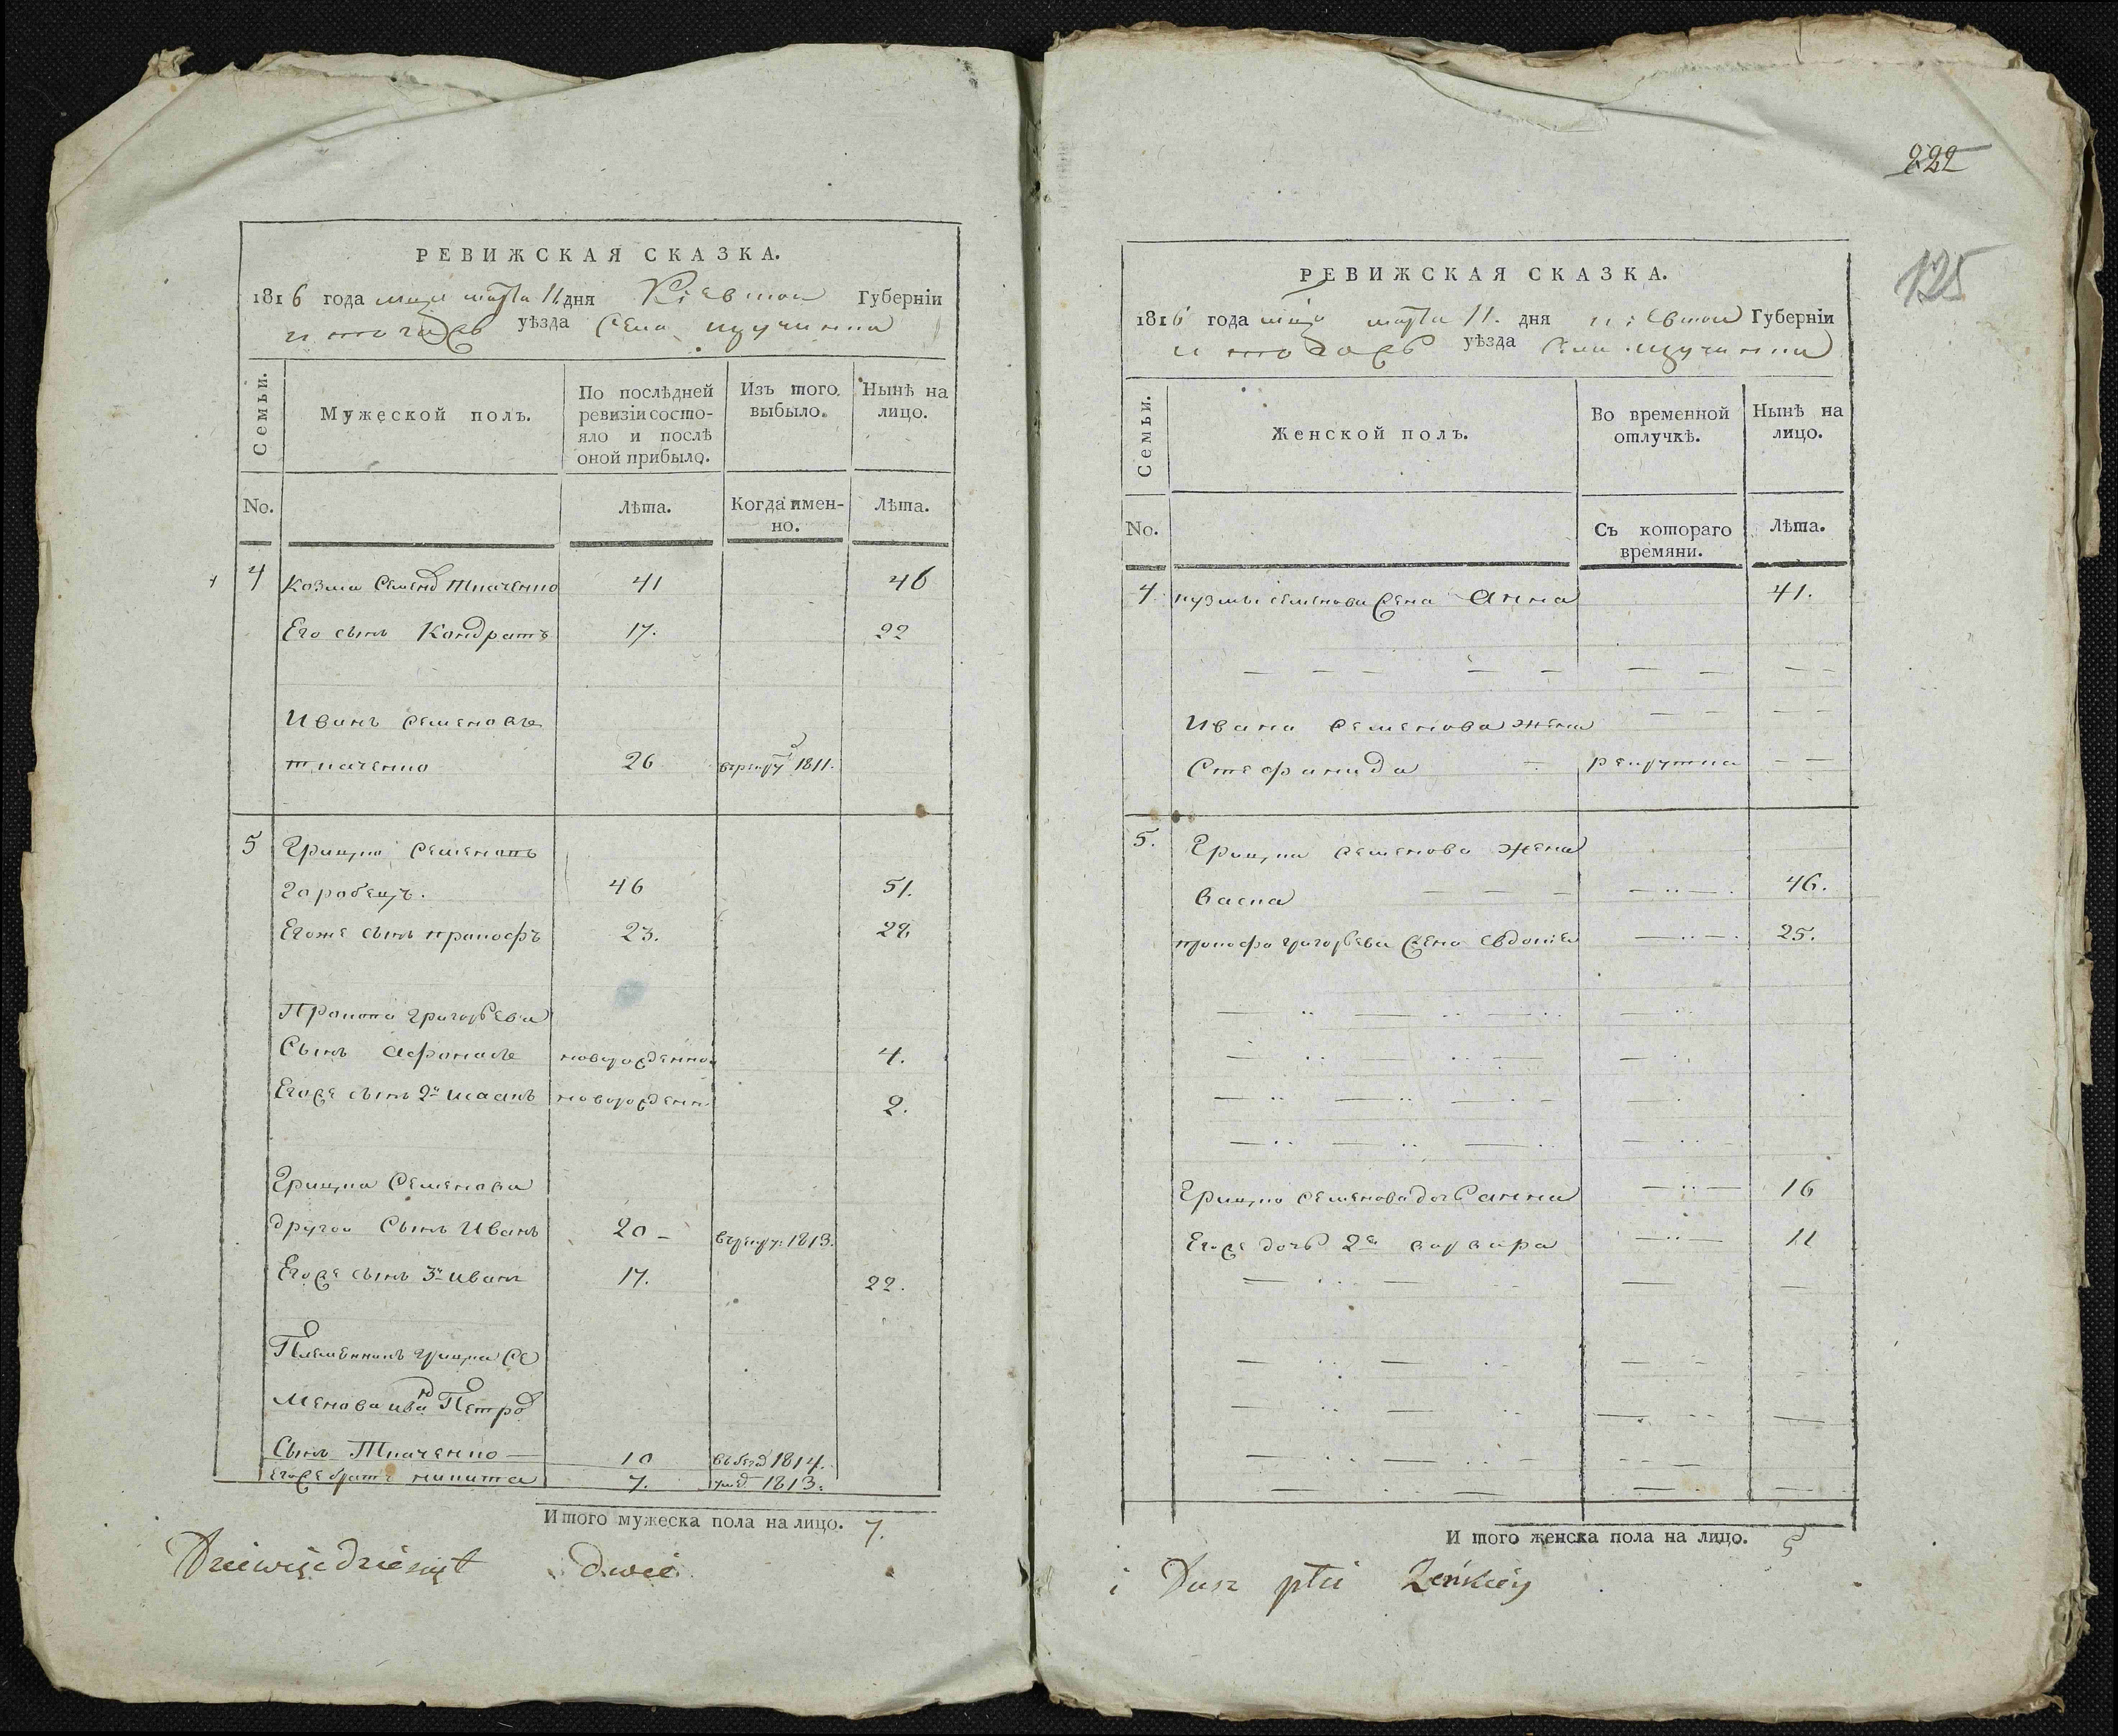 РЕВИЖСКАЯ СКАЗКА.
1816 года мца марта 11 дня Кіевской Губерніи
уѣзда Села щучинки
Семьи.
Мужеской полъ.
По послѣдней ревизіи состояло и послѣ оной прибыло.
Изъ того выбыло.
Нынѣ на лицо.
No.
Лѣта.
Когда имен-но.
Лѣта.
4 Козма Семенов Ткаченко 41 46
Его сынъ Кондратъ 17. 22
Иванъ Семеновъ
ткаченко 26 врекру 1811.
5 Грицко Семеновъ
Гаробецъ. 46 51.
Егоже сынъ прокофъ 23. 28
Прокопа Григорьева
Сынъ Афонасъ новорожденной 4.
Егоже сынъ 2й Исаакъ новорожден 2.
Грицка Семенова
другои Сынъ Иванъ 20 - врекру: 1813.
Егоже сынъ 3й иванъ 17. 22.
Племенникъ грицка Се
менова ива Петров
Сынъ Ткаченко — 10 въ бегах 1814.
Егоже братъ никита 7. умер 1813.
Итого мужеска пола на лицо. 7.
Dziewięcdziesiąt dwie
222
125
РЕВИЖСКАЯ СКАЗКА.
1816 года мца марта 11. дня кіевской Губерніи
уѣзда Села щучинки
Семьи.
Женской полъ.
Во временной отлучкѣ.
Нынѣ на лицо.
No.
Съ котораго времяни.
Лѣта.
4. кузмы семенова жена Анна 41.
Ивана Семенова жена
Стефанида рекрутка
5. Грицка семенова жена
Васка 46.
прокофа григорьева жена Евдокіея 25.
Грицка семенова дочь анна 16
Егоже дочь 2я варвара 11
И того женска пола на лицо. 5
i Dusz płci Żeńskiey